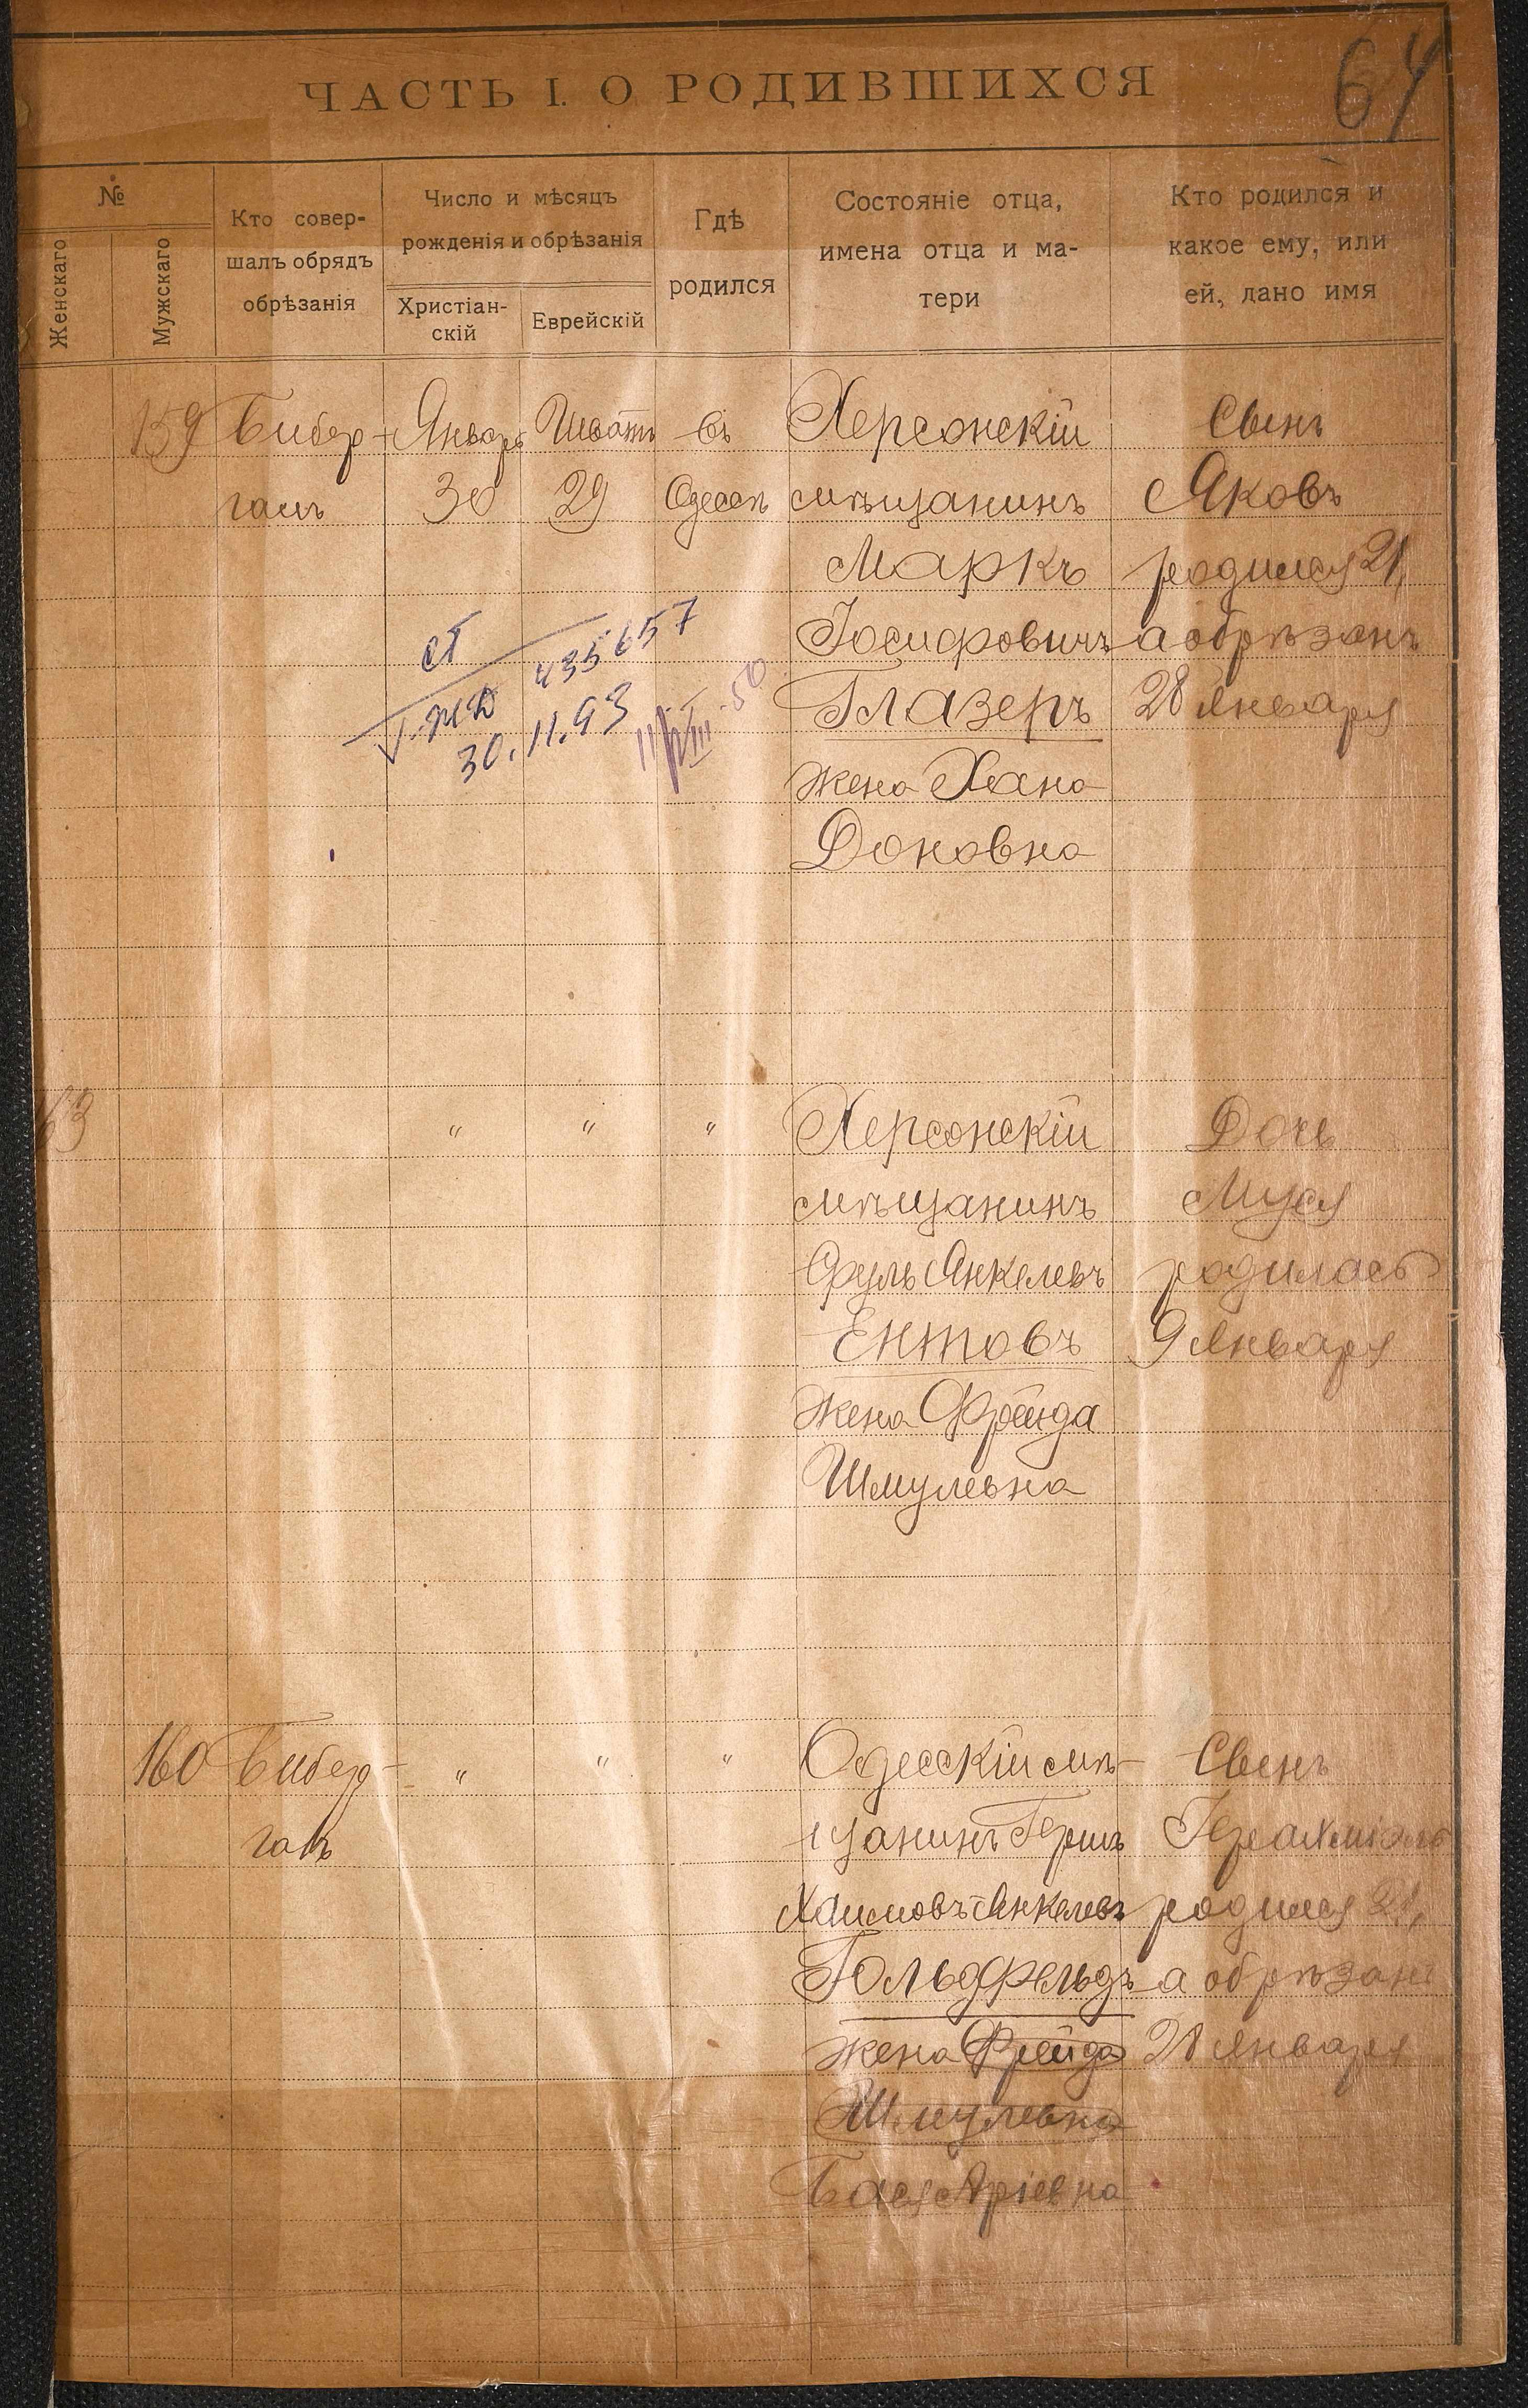 ЧАСТЬ I. О РОДИВШИХСЯ
64
№
Женскаго
Мужскаго
Кто совер-
шалъ обрядъ
обрѣзанія
Число и мѣсяцъ
рожденія и обрѣзанія
Христіан-
скій
Еврейскій
Гдѣ
родился
Состояніе отца,
имена отца и ма-
тери
Кто родился и
какое ему, или
ей, дано имя
159
Бибер-
галь
Январь
30
Шватъ
29
въ
Одессѣ
Херсонскій
мѣщанинъ
Маркъ
Іосифовичъ
Глазеръ
жена Хана
Доновна
Сынъ
Яковъ
родился 21,
а обрѣзанъ
28 января
435657
30.11.93
63
"
"
"
Херсонскій
мѣщанинъ
Сруль Янкелевъ
Ентовъ
жена Фрейда
Шмулевна
Дочь
Муся
родилась
9 января
160
Бибер-
галь
"
"
"
Одесскій мѣ-
щанинъ Гершъ
Хаимовъ-Янкелевъ
Гольдфельдъ
жена Фрейда
Шмулевна
Бася Аріевна
Сынъ
Іерахміэль
родился 21,
а обрѣзанъ
28 января